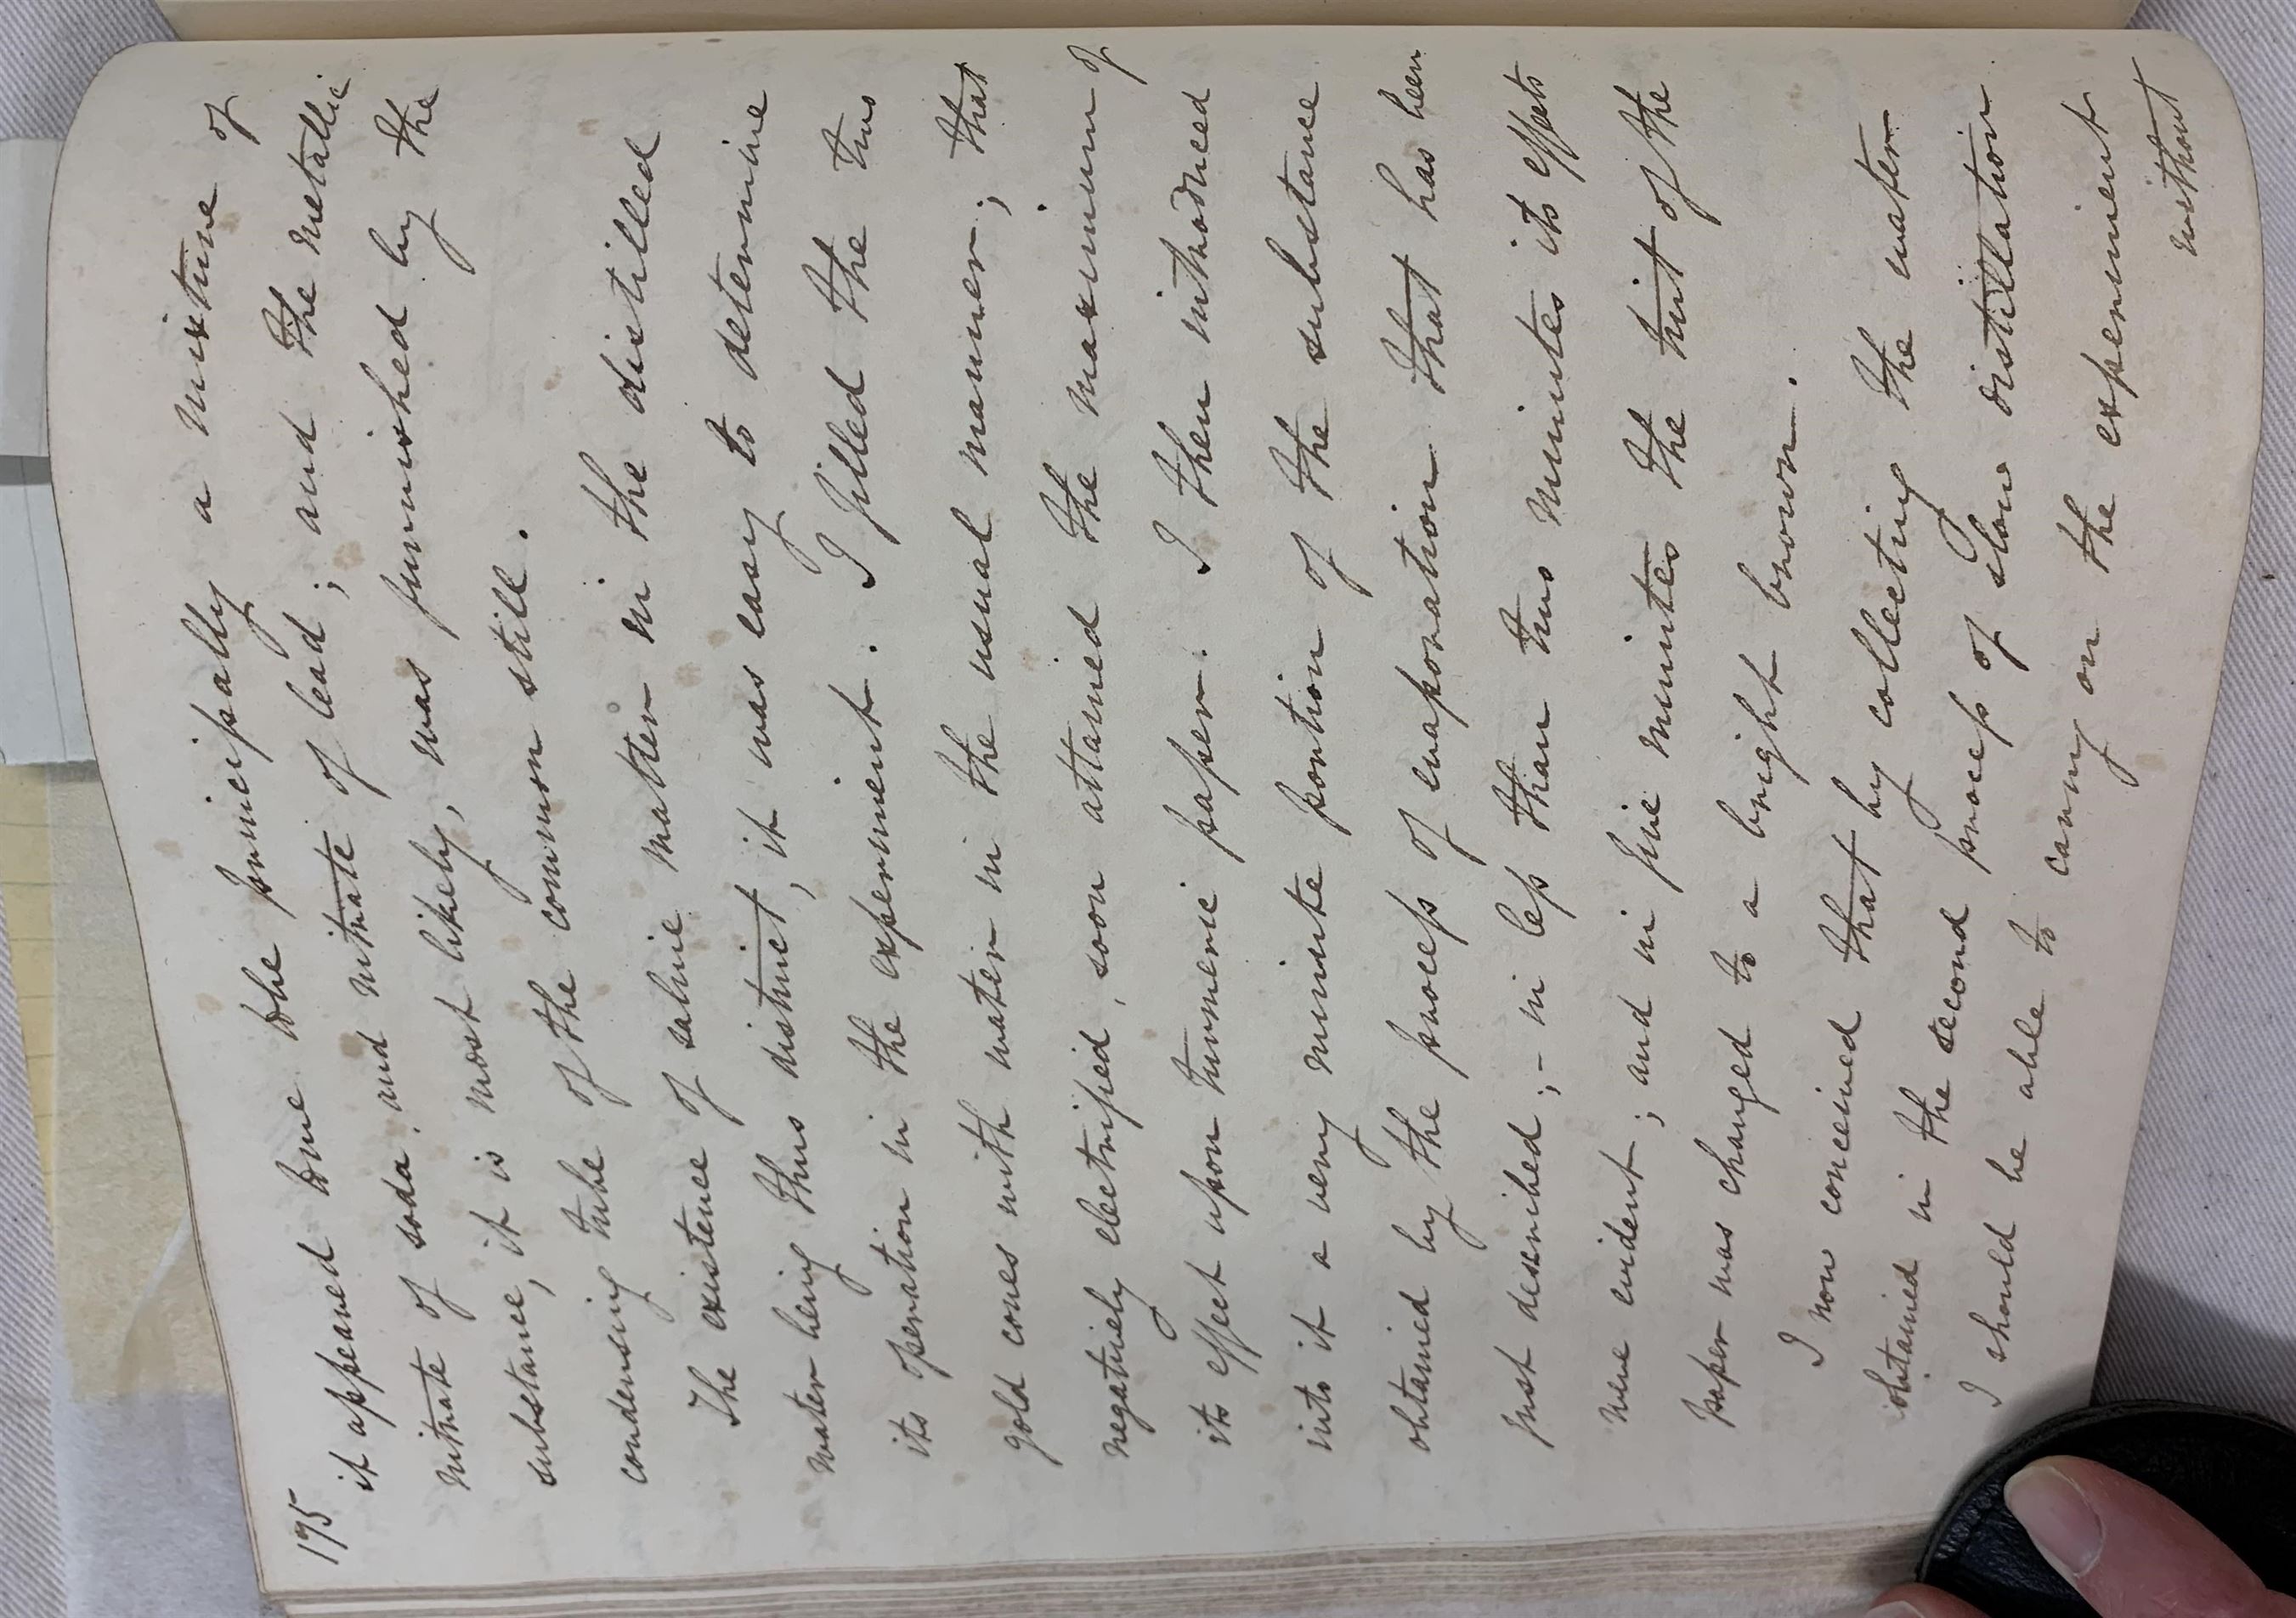 195
it appeared to me to be principally a mixture of
nitrate of soda and nitrate of lead; and the metallic
substance, it is most likely, was furnished by the
condensing tube of the common still.
The existence of saline matter in the distilled
water being thus distinct, it was easy to determine
its operation in the experiment. I filled the two
gold cones with water in the usual manner; that
negatively electrified, soon attained the maximum of
its effect upon turmeric paper. I then introduced
into it a very minute portion of the substance
obtained by the process of evaporation that has been
just described;- in less than two minutes its effects
were evident; and in five minutes the tint of the
paper was changed to a bright brown.
I now conceived that by collecting the water
obtained in the second process of slow distillation
I should be able to carry on the experiment
without